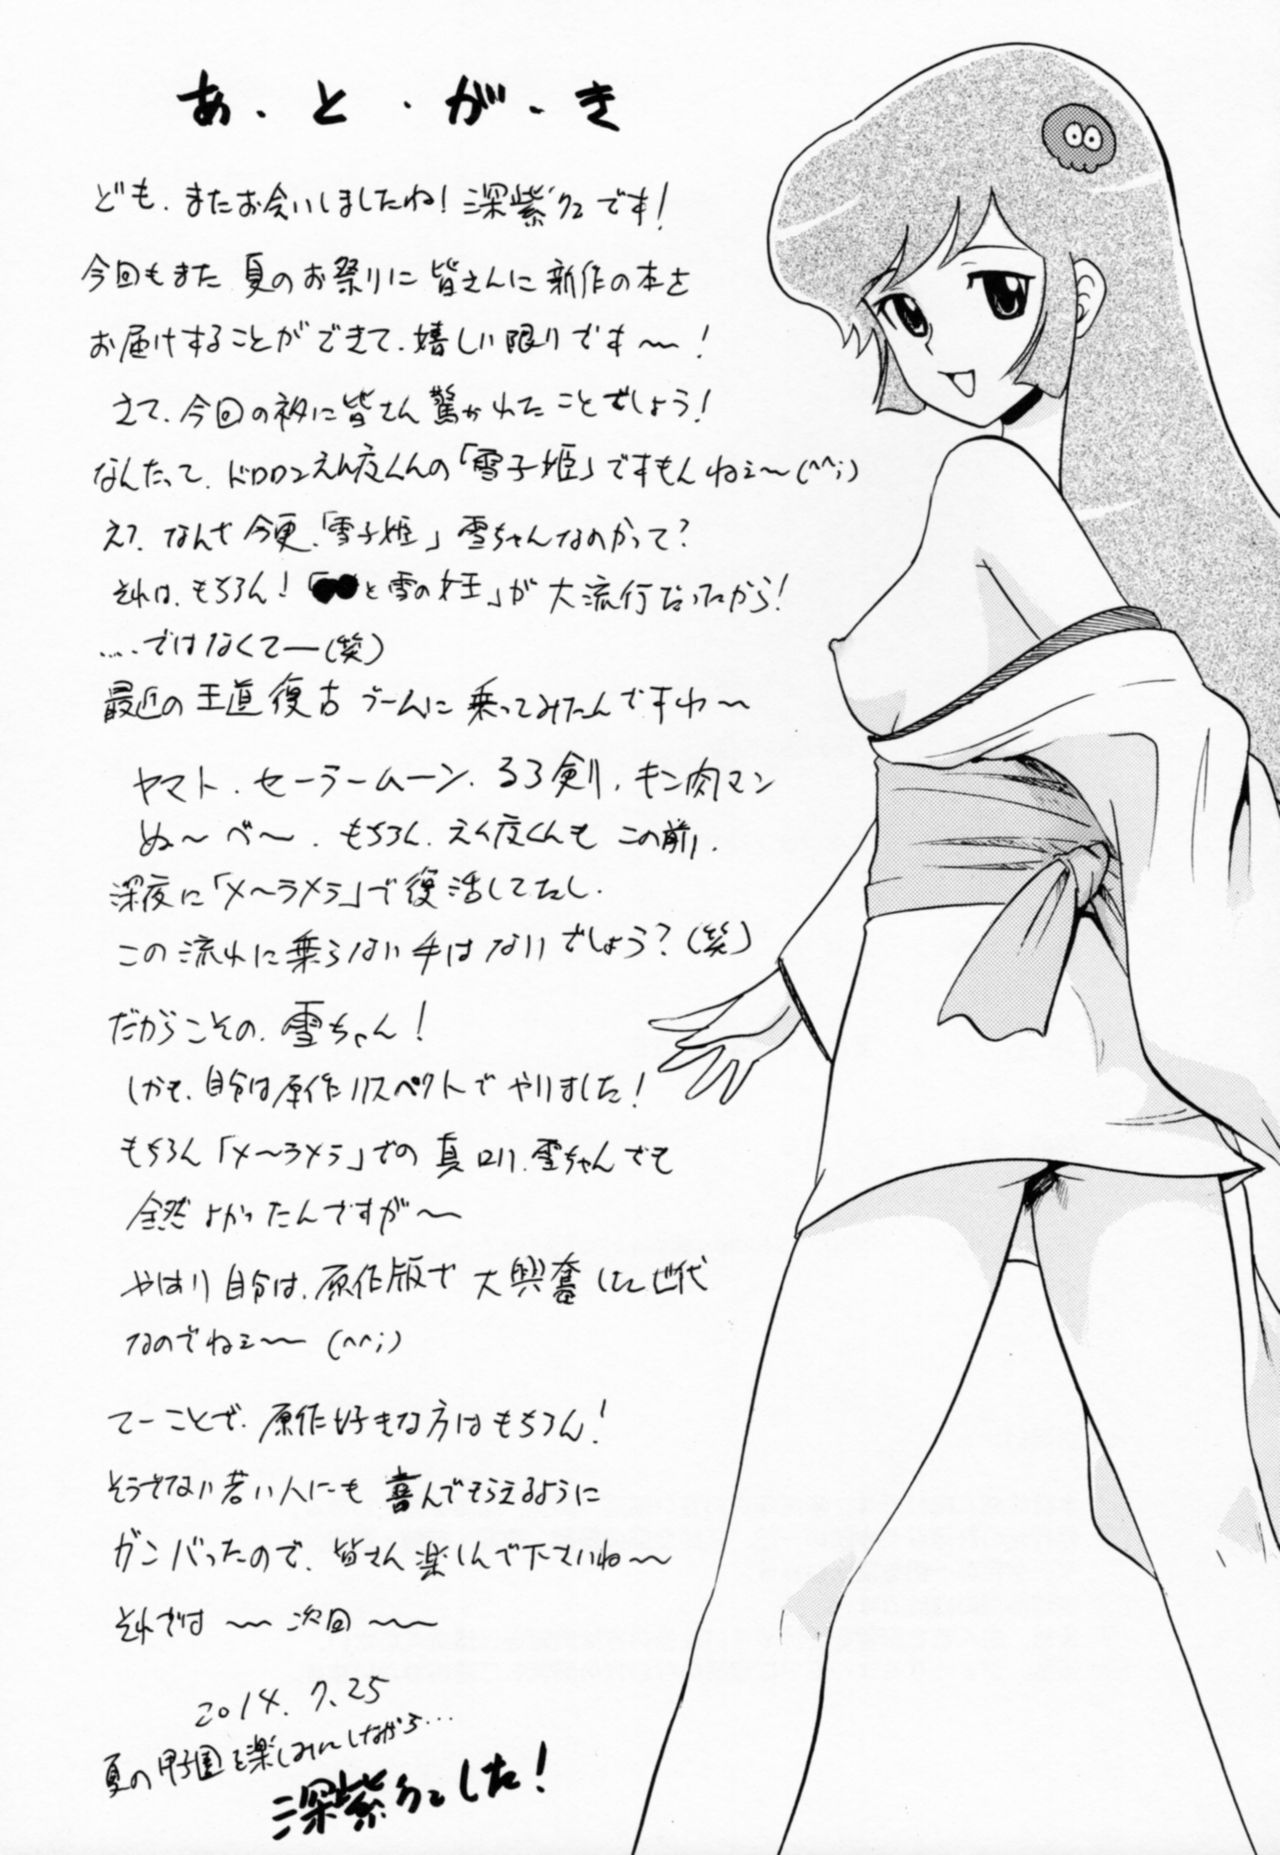 あ・と・が・き
ども、またお会いしましたね！深紫クコです！
今回もまた 夏のお祭りに 皆さんに 新作の本を
お届けすることができて、嬉しい限りです〜！
さて、今回のネタに皆さん驚かれたことでしょう！
なんたって、ドロロンえん魔くんの「雪子姫」ですもんねェ〜(^^;)
え？なんで今更、「雪子姫」雪ちゃんなのかって？
それは、もちろん！「●●と雪の女王」が大流行だったから！
‥‥ではなくてー(笑)
最近の王道復古ブームに乗ってみたんですわ〜
ヤマト、セーラームーン、るろ剣、キン肉マン
ぬ〜べ〜、もちろん、えん魔くんも この前、
深夜に「メ〜ラメラ」で復活してたし、
この流れに乗らない手はないでしょう？(笑)
だからこその、雪ちゃん！
しかも、自分は原作リスペクトでやりました！
もちろん「メ〜ラメラ」での真ロリ雪ちゃんでも
全然よかったんですが〜
やはり自分は、原作版で大興奮した世代
なのでねェ〜〜(^^;)
てーことで、原作好きな方はもちろん！
そうでない若い人にも 喜んでもらえるように
ガンバったので、皆さん楽しんで下さいね〜〜
それでは〜〜次回〜〜
2014.7.25
夏の甲子園を楽しみにしながら…
深紫クコでした！